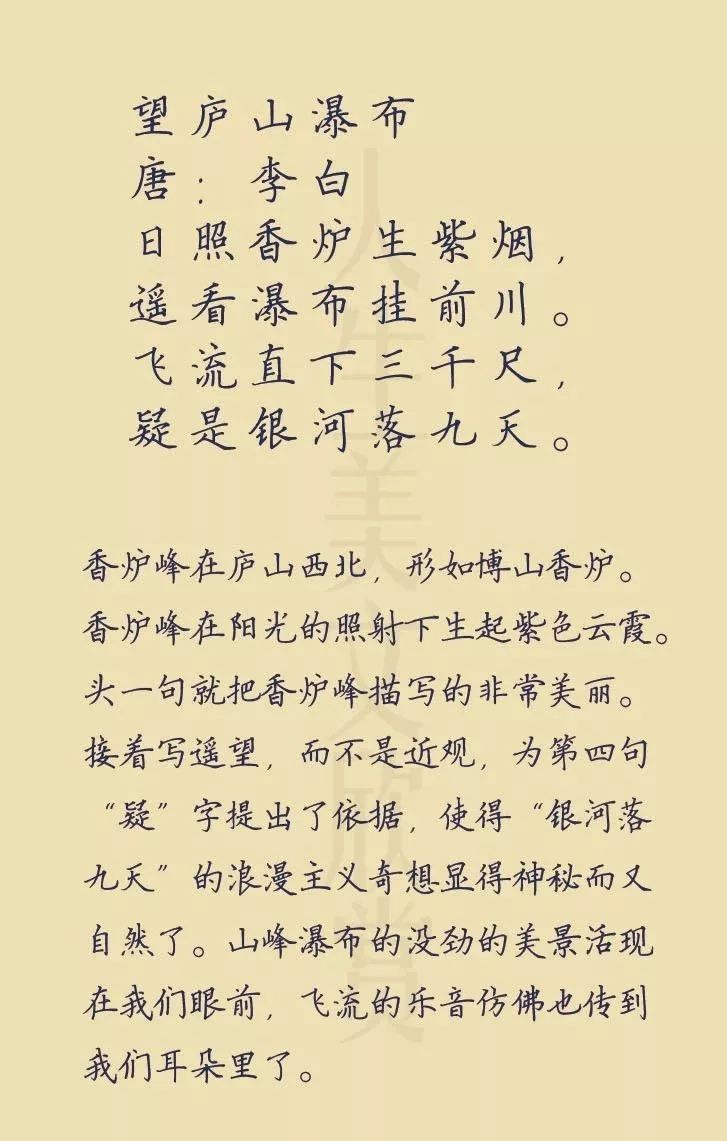 望庐山瀑布
唐：李白
日照香炉生紫烟，
遥看瀑布挂前川。
飞流直下三千尺，
疑是银河落九天。
香炉峰在庐山西北，形如博山香炉。
香炉峰在阳光的照射下生起紫色云霞。
头一句就把香炉峰描写的非常美丽。
接着写遥望，而不是近观，为第四句
“疑”字提出了依据，使得“银河落
九天”的浪漫主义奇想显得神秘而又
自然了。山峰瀑布的没劲的美景活现
在我们眼前，飞流的乐音仿佛也传到
我们耳朵里了。
人生美文欣赏